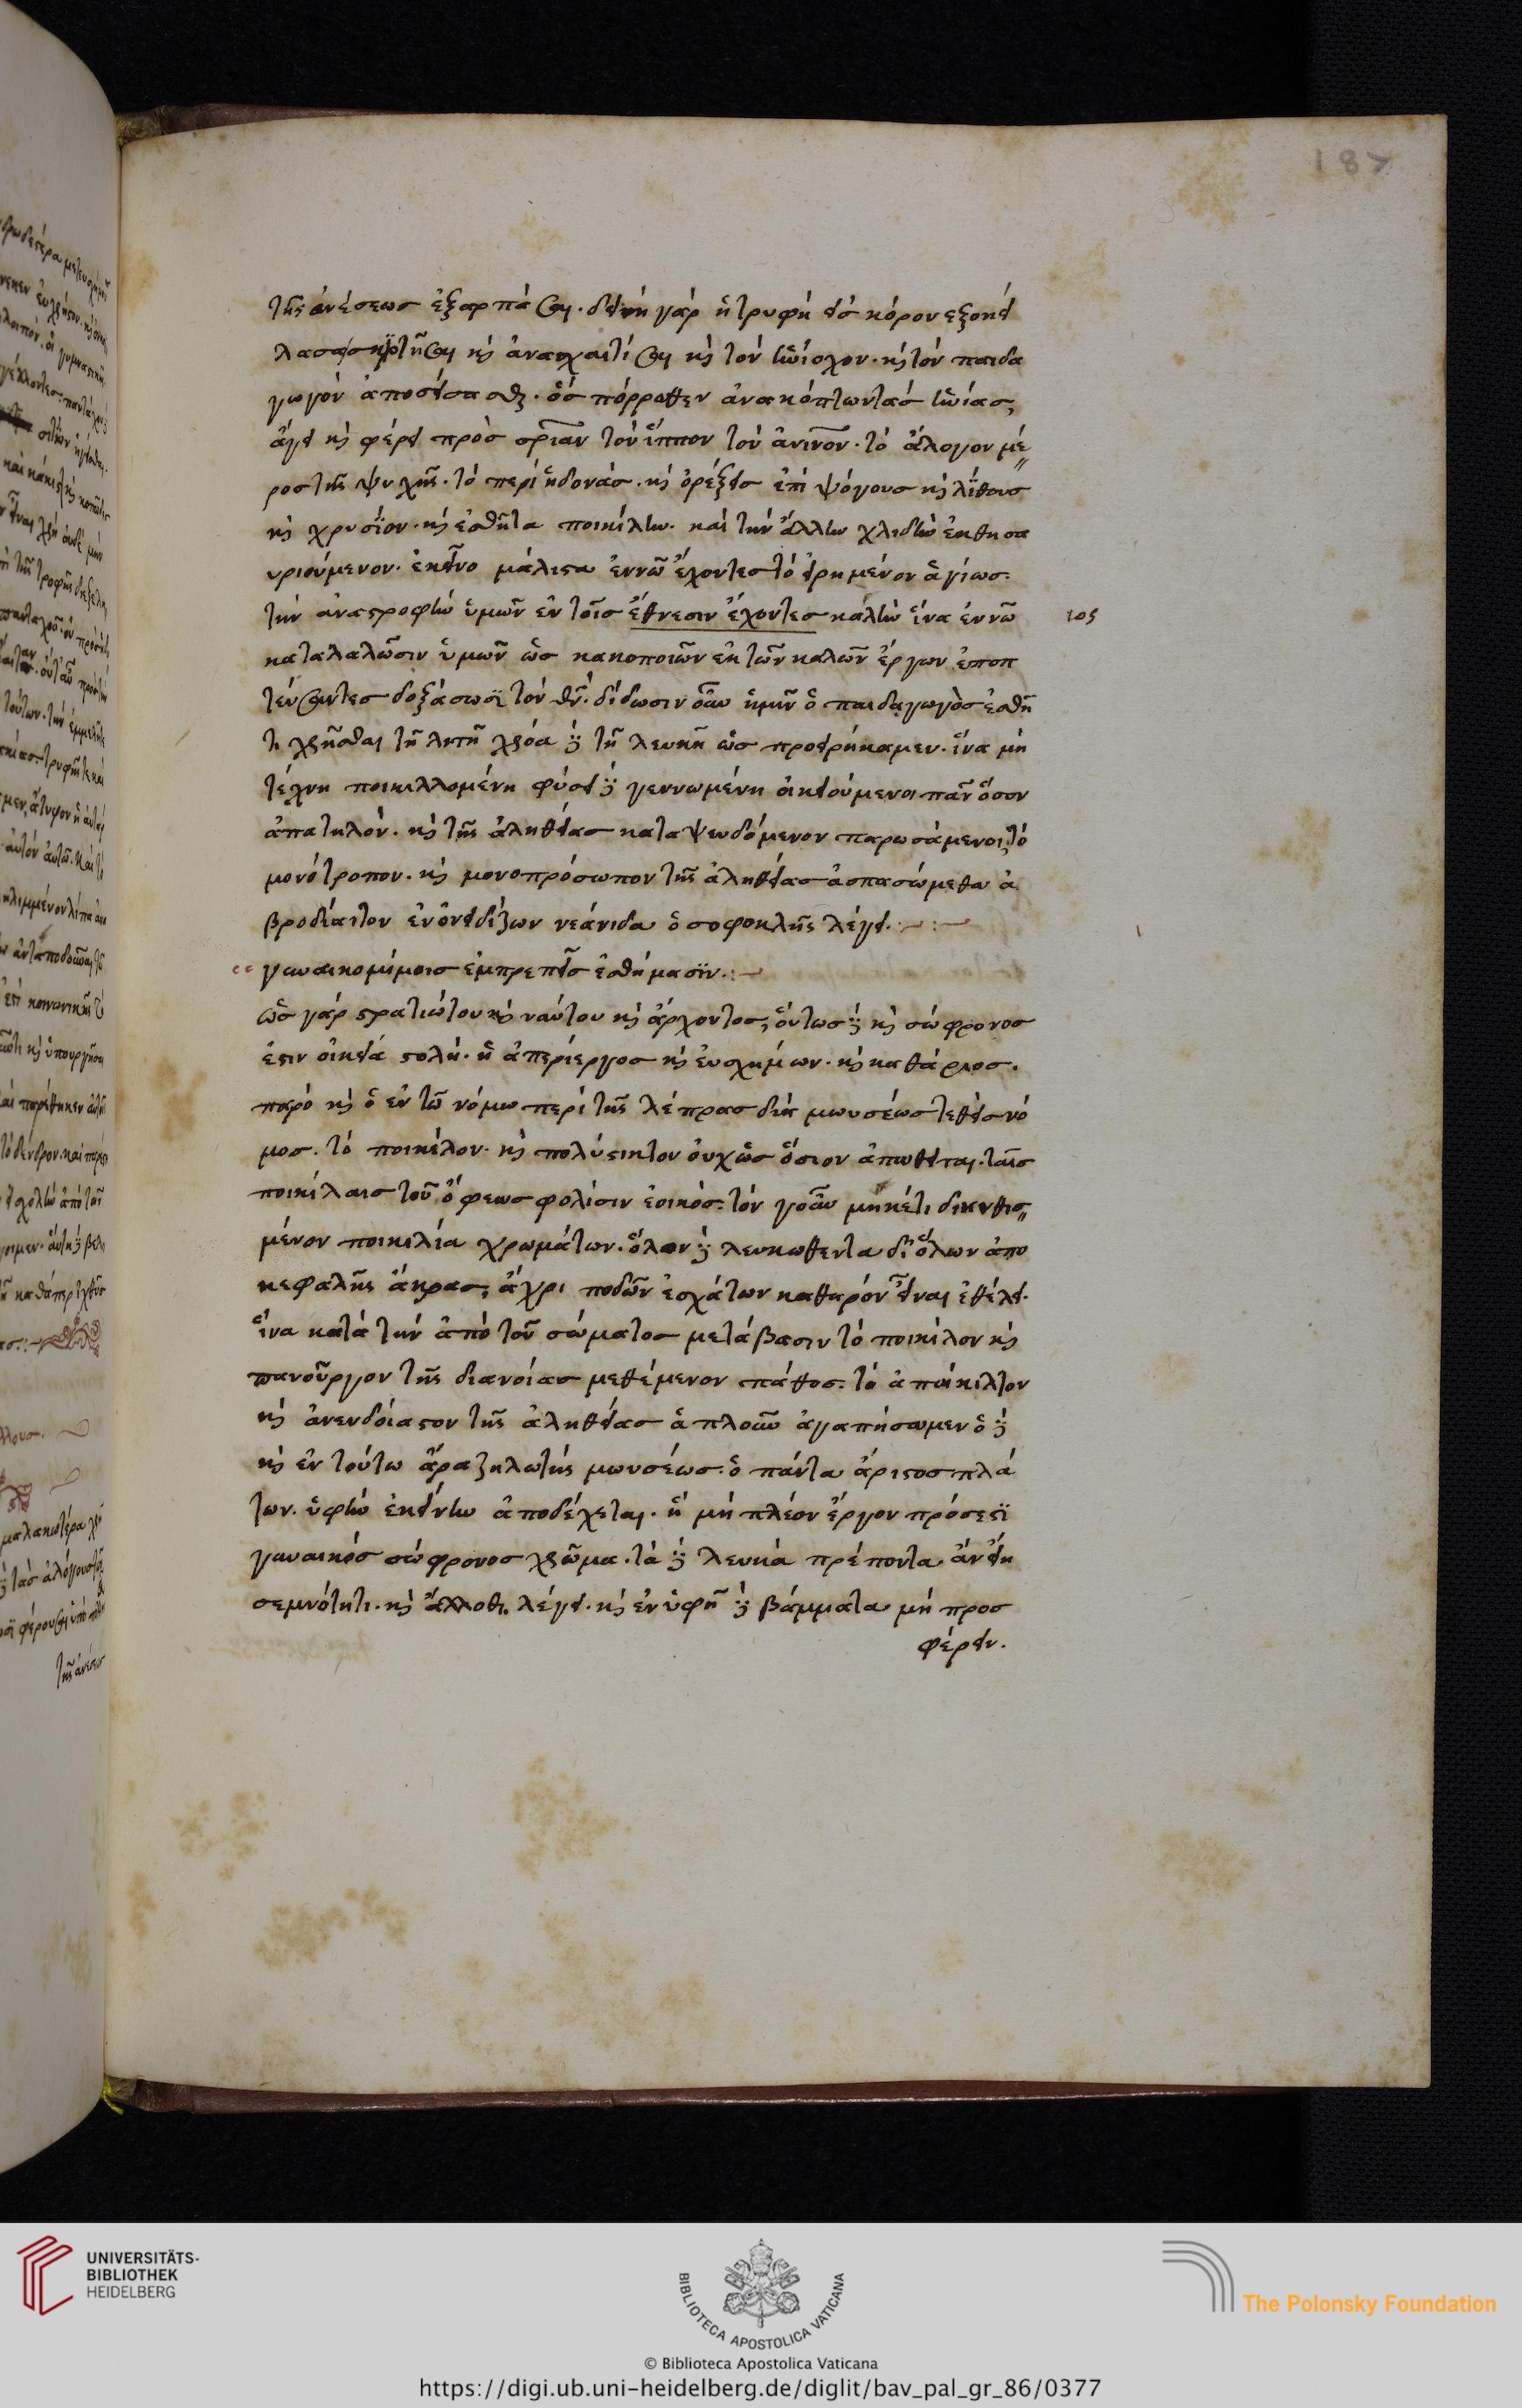 187
τῆς ἀνέσεως ἐξαρπάσαι. δεινὴ γὰρ ἡ τρυφὴ εἰς κόρον ἐξοκεί
λασα σκιρτῆσαι κ̀ ἀναχαιτίσαι κ̀ τὸν ἡνίοχον. κ̀ τὸν παιδα
γωγὸν ἀποσείσασθαι. ὃς πόρρωθεν ἀνακόπτων τὰς ἡνίας,
ἄγει κ̀ φέρει πρὸς σρίαν τὸν ἵππον τὸν ἀνινον. τὸ ἄλογον μέ
ρος τῆς ψυχῆς. τὸ περὶ ἡδονὰς. κ̀ ὀρέξεις ἐπὶ ψόγους κ̀ λίθους
κ̀ χρυσίον. κ̀ ἐσθῆτα ποικίλην. καὶ τὴν ἄλλην χλιδὴν ἐκθησα
υριούμενον. ἐκεῖνο μάλιστα ἐν νῶ ἔχοντες τὸ εἰρημένον ἁγίως.
τὴν ἀναστροφὴν ὑμῶν ἐν τοῖς ἔθνεσιν ἔχοντες καλὴν ἵνα ἐν νῶ
ιος
καταλαλῶσιν ὑμῶν ὡς κακοποιῶν ἐκ τῶν καλῶν ἔργων ἐποπ
τεύσαντες δοξάσωσι τὸν θν̄. δίδωσιν οὖν ἡμῖν ὁ παιδαγωγὸς ἐσθῆ
τι χρῆσθαι τῆ λιτῆ χρόα δὲ τῆ λευκῆ ὡς προειρήκαμεν. ἵνα μὴ
τέχνη ποικιλλομένη φύσει δὲ γεννωμένη οἰκειούμενοι πᾶν ὅσον
ἀπατηλὸν. κ̀ τῆς ἀληθείας καταψευδόμενον παρωσάμενοι, τὸ
μονότροπον. κ̀ μονοπρόσωπον τῆς ἀληθείας ἀσπασώμεθα ἁ
βροδίαιτον ἐν ὀνειδίζων νεάνιδα ὁ σοφοκλῆς λέγει.
γυναικομίμοις ἐμπρεπεῖς ἐσθήμασιν.
ὡς γὰρ στρατιώτου κ̀ ναύτου κ̀ ἄρχοντος, οὕτως δὲ κ̀ σώφρονος
ἐστιν οἰκεία στολὴ. ἡ ἀπερίεργος κ̀ εὐσχήμων. κ̀ καθάριος.
παρὸ κ̀ ὁ ἐν τῶ νόμω περὶ τῆς λέπρας διὰ μωυσέως τεθεὶς νό
μος. τὸ ποικίλον. κ̀ πολύστικτον οὐχ ὡς ὅσιον ἀπωθεῖται. ταῖς
ποικίλαις τοῦ ὄφεως φολίσιν ἐοικὸς. τὸν γοῦν μηκέτι διηνθισ
μένον ποικιλία χρωμάτων. ὅλον δὲ λευκωθέντα δι' ὅλων ἀπο
κεφαλῆς ἄκρας, ἄχρι ποδῶν ἐσχάτων καθαρὸν εἶναι ἐθέλει.
ἵνα κατὰ τὴν ἀπὸ τοῦ σώματος μετάβασιν τὸ ποικίλον κ̀
πανοῦργον τῆς διανοίας μεθέμενον πάθος. τὸ ἀποίκιλτον
κ̀ ἀνενδοίαστον τῆς ἀληθείας ἁπλοῦν ἀγαπήσωμεν ὁ δὲ
κ̀ ἐν τούτω ἄρα ζηλωτὴς μωυσέως. ὁ πάντα ἄριστος πλά
των. ὑφὴν ἐκείνην ἀποδέχεται. ἧ μὴ πλέον ἔργον πρόσεστι
γυναικὸς σώφρονος χρῶμα. τὰ δὲ λευκὰ πρέποντα ἂν εἴη
σεμνότητι. κ̀ ἄλλοθι λέγει. κ̀ ἐν ὑφῆ δὲ βάμματα μὴ προσ
φέρειν.
UNIVERSITÄTS-
BIBLIOTHEK
HEIDELBERG
BIBLIOTECA APOSTOLICA VATICANA
The Polonsky Foundation
© Biblioteca Apostolica Vaticana
https://digi.ub.uni-heidelberg.de/diglit/bav_pal_gr_86/0377